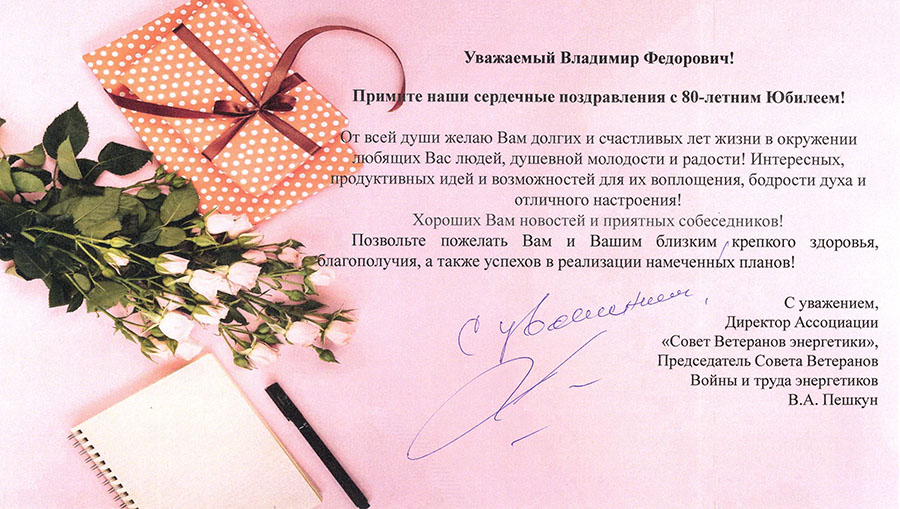 Уважаемый Владимир Федорович!
Примите наши сердечные поздравления с 80-летним Юбилеем!
От всей души желаю Вам долгих и счастливых лет жизни в окружении
любящих Вас людей, душевной молодости и радости! Интересных,
продуктивных идей и возможностей для их воплощения, бодрости духа и
отличного настроения!
Хороших Вам новостей и приятных собеседников!
Позвольте пожелать Вам и Вашим близким крепкого здоровья,
благополучия, а также успехов в реализации намеченных планов!
С уважением,
С уважением,
Директор Ассоциации
«Совет Ветеранов энергетики»,
Председатель Совета Ветеранов
Войны и труда энергетиков
В.А. Пешкун